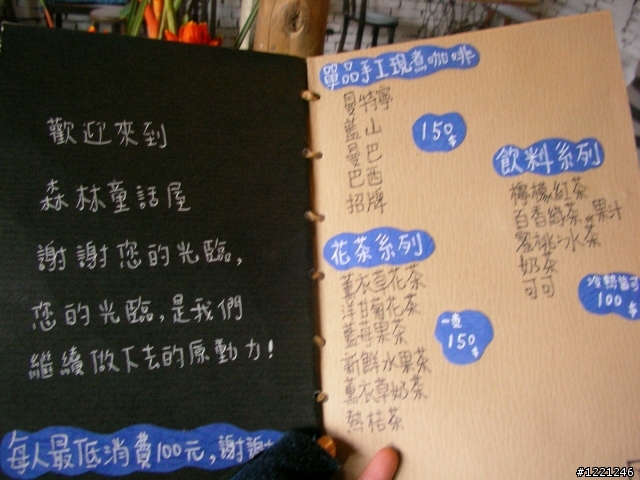 歡迎來到
森林童話屋
謝謝您的光臨,
您的光臨,是我們
繼續做下去的原動力!
每人最低消費100元,謝謝
單品手工現煮咖啡
曼特寧
藍山
曼巴
巴西
招牌
150元
花茶系列
薰衣草花茶
洋甘菊花茶
藍莓果茶
新鮮水果茶
薰衣草奶茶
熱桔茶
一壺
150元
飲料系列
檸檬紅茶
百香綠茶 果汁
蜜桃冰茶
奶茶
可可
冷熱皆可
100元
#1221246